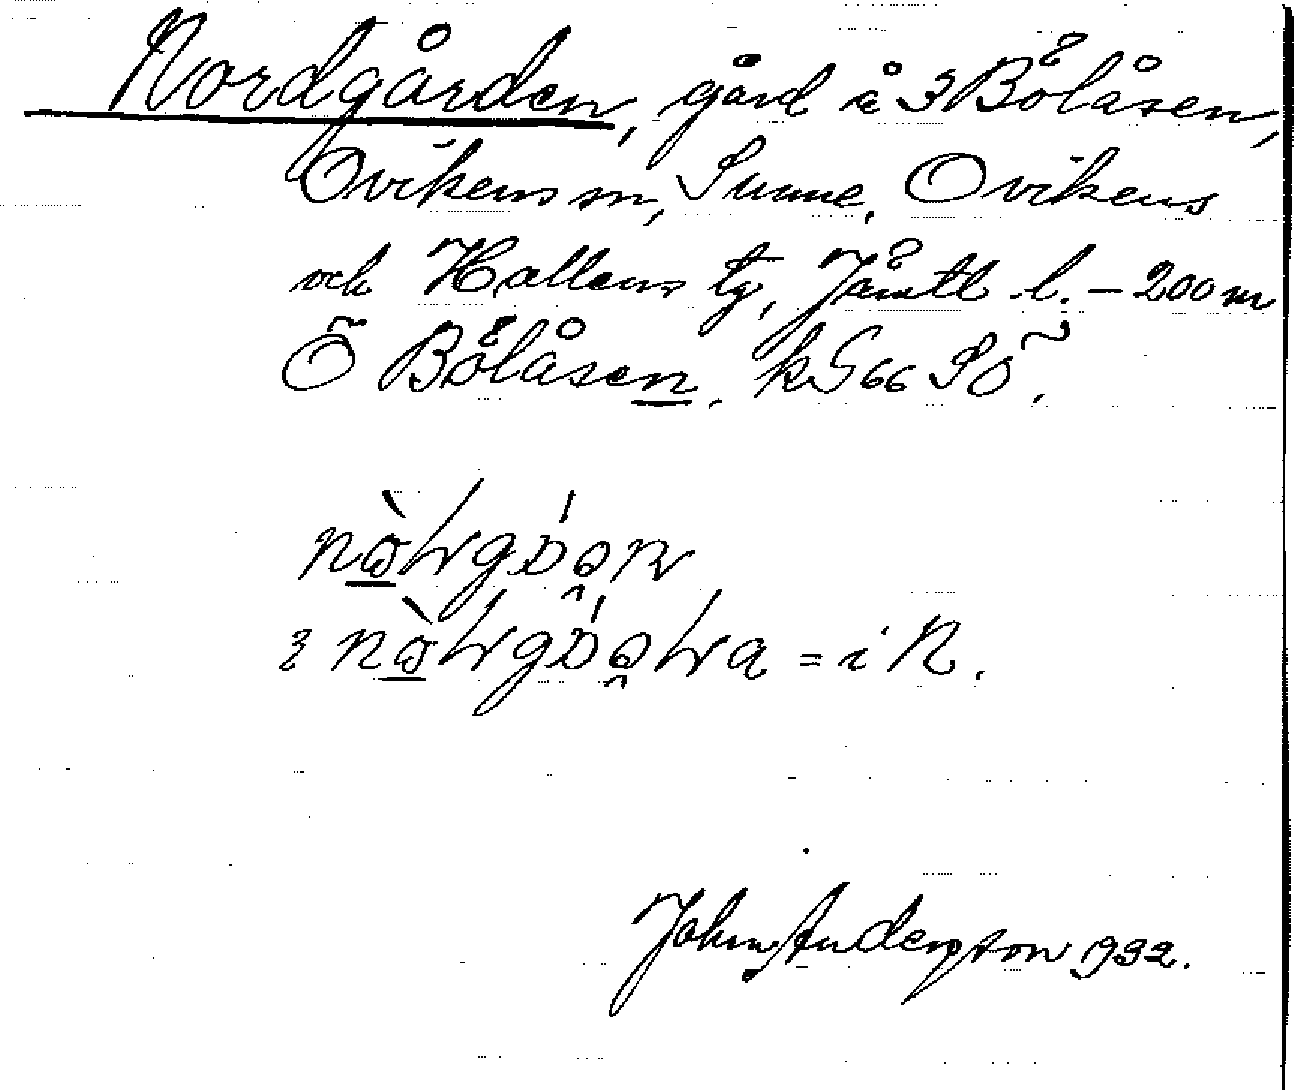 Nordgården, gård i 3 Bölåsen,
Ovikens sn, Sunne, Ovikens
och Hallens tg, Jämtl. l. – 200 m
Ö Bölåsen. k G 66 SÖ.
= i N.
John Anderson 1932.